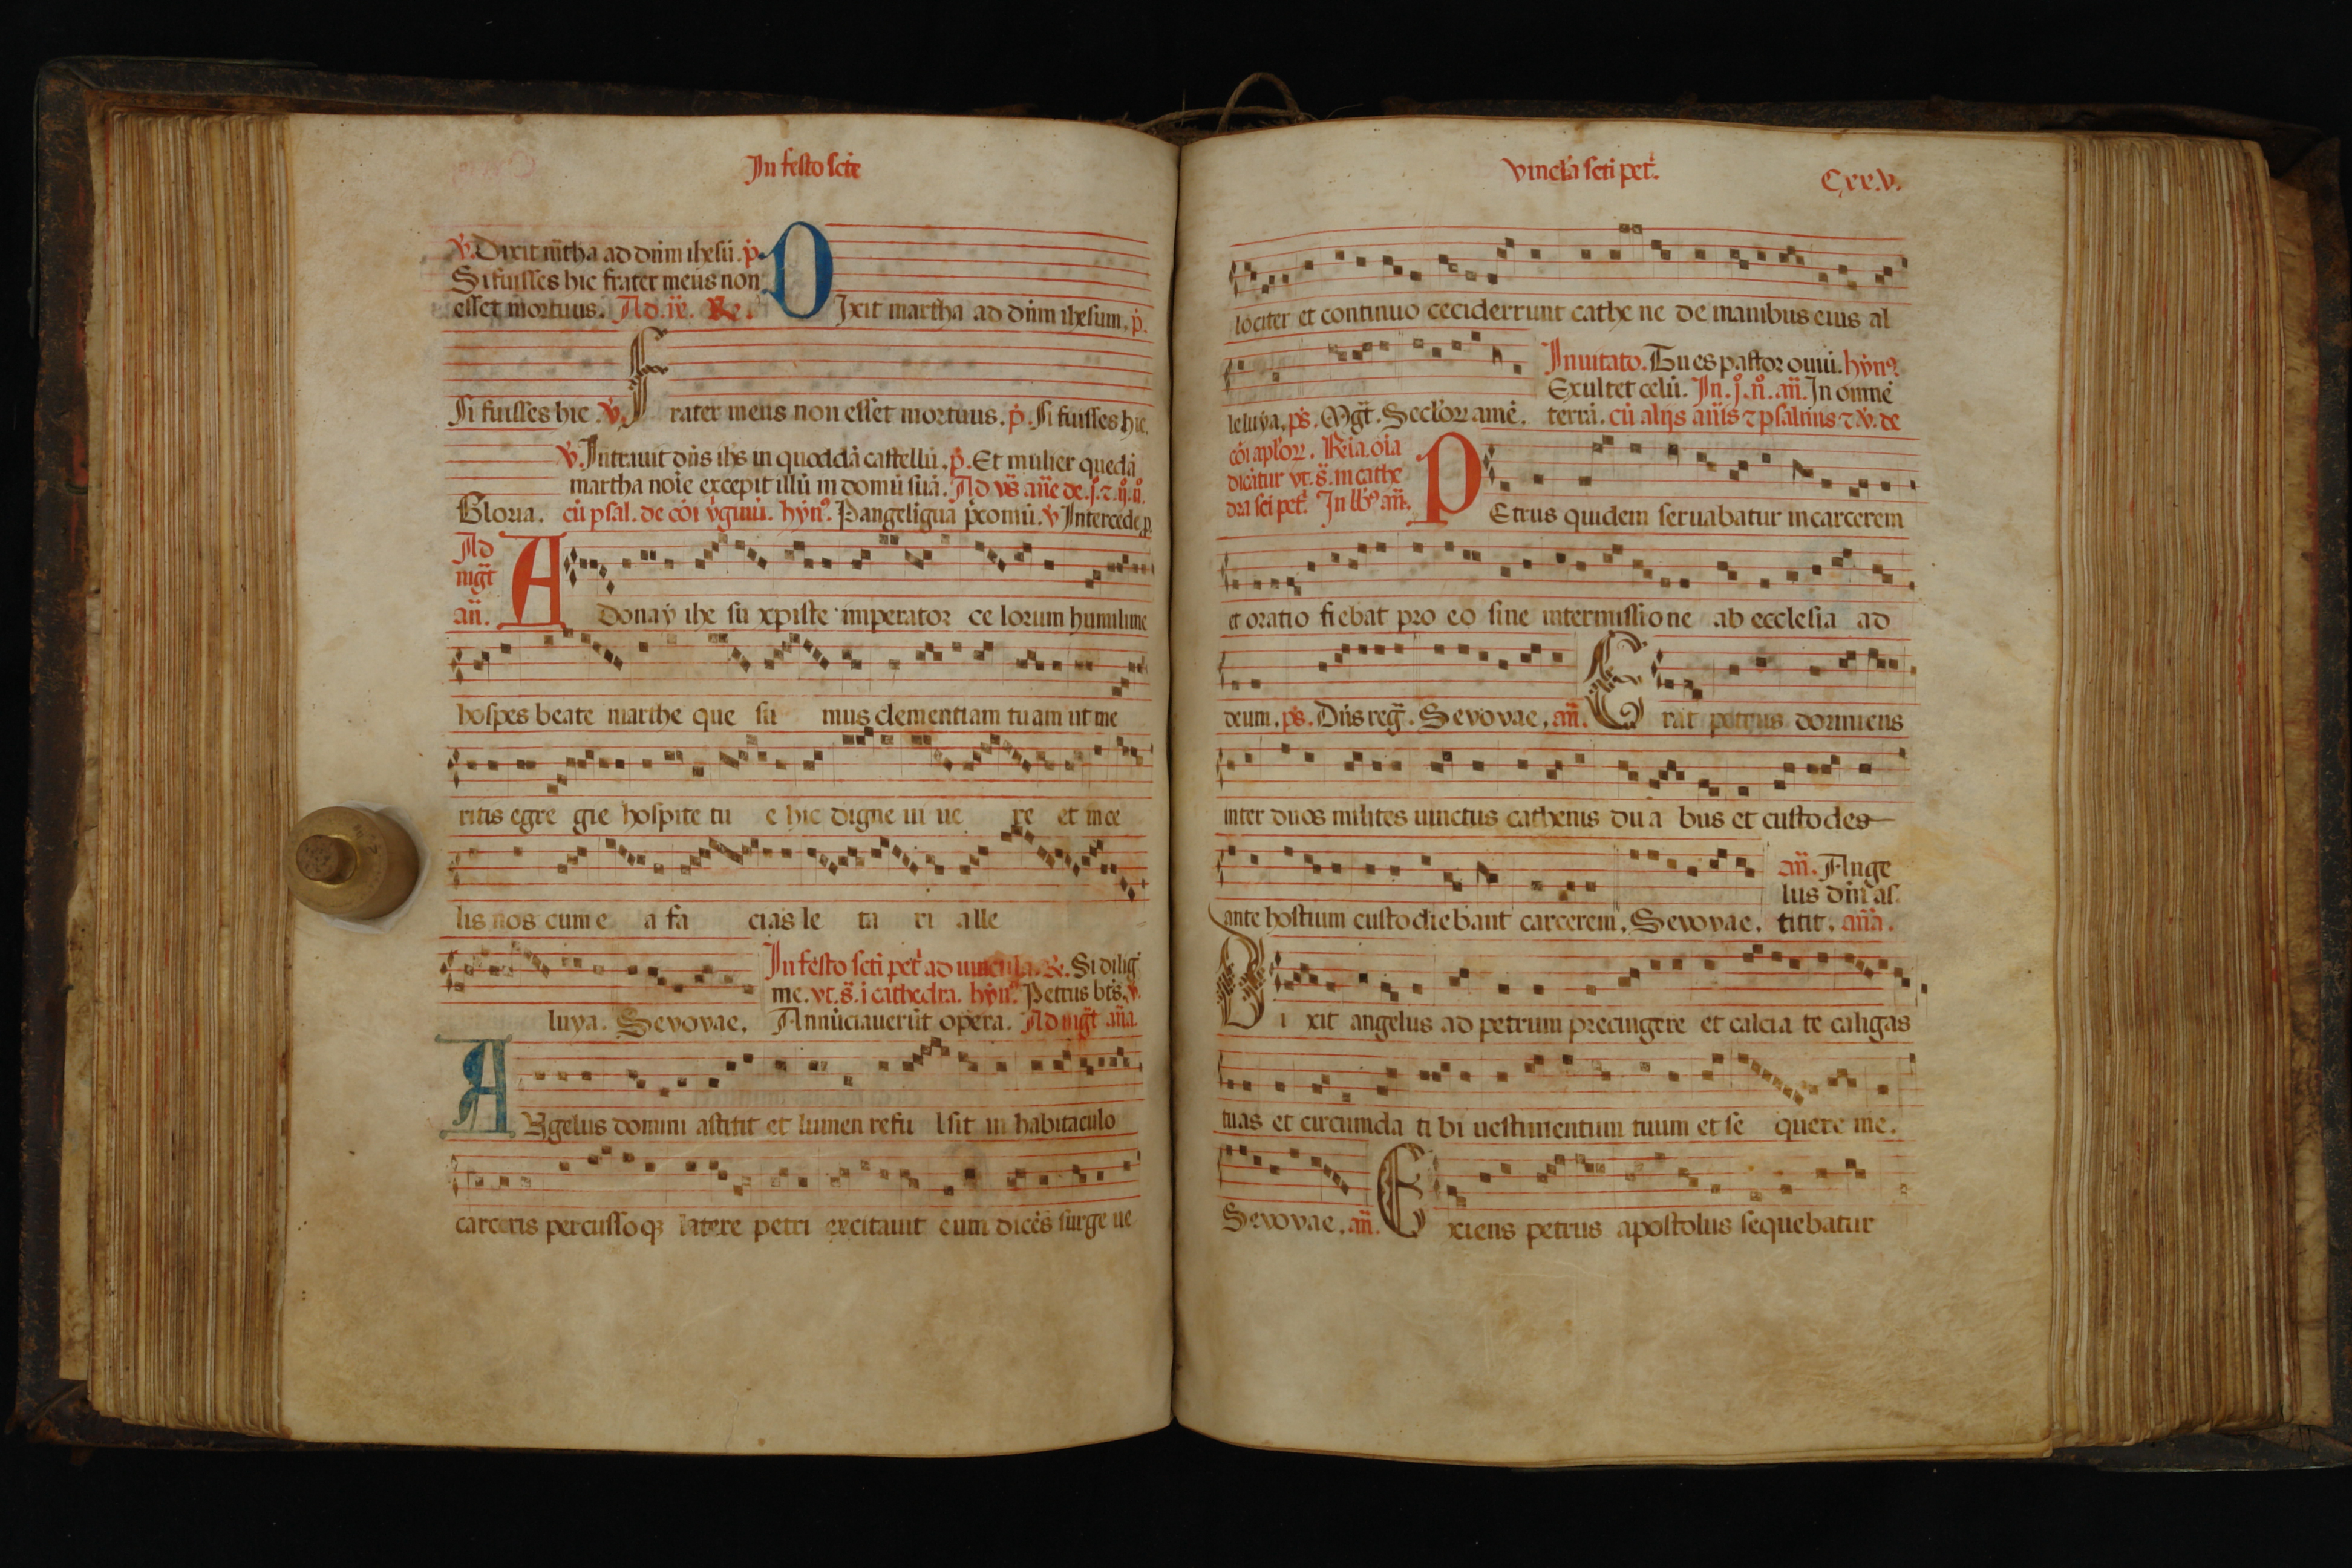 In festo scte
℣. Dixit m̄tha ad dn̄m ihesū. p̄.
Si fuisses hic frater meus non
esset mortuus. Ad .ix. ℟.
DIxit martha ad dn̄m ihesum. p̄.
Si fuisses hic ℣. Frater meus non esset mortuus. p̄. Si fuisses hic.
℣. Intrauit dn̄s ihs in quoddā castellū. p̄. Et mulier quedā
martha noīe excepit illū in domū suā. Ad
Gloria. cū psal. de cōi ỽginū. hyn̄. Pangeliguā ỽ Intercede p.
Ad
mḡt
an̄.
Adonay ihe su xpiste imperator ce lorum humilime
hospes beate marthe que su mus clementiam tuam ut me
ritis egre gie hospite tu e hic digne ui ue re et in ce
lis nos cum e a fa cias le ta ri alle
In festo scti pet̄ ad uincula. ℟. Si diliḡ
me. vt. s̄. ī cathedra. hyn̄. Petrus bt̄s. ℣.
luya. Seuouae. Annūciauerūt opera. Ad mḡt an̄a.
ANgelus domini astitit et lumen refu lsit in habitaculo
carceris percussoqꝫ latere petri excitauit eum dicēs surge ue
vincl̄a scti pet̄.
C.xx.v.
lociter et continuo ceciderrunt cathe ne de manibus eius al
Inuitato. Tu es pastor ouiū. hynꝰ.
Exultet celū. In .j. n̄. an̄. In omnē
leluya. ps̄. Mḡt. Secl̄oꝝ amē. terrā. cū alijs an̄is ⁊ psalmis ⁊ ℣. de
cōi apl̄oꝝ. Rl̄ia. oīa
dicātur vt. s̄. in cathe
dra sci pet̄. In an̄.
PEtrus quidem seruabatur in carcerem
et oratio fiebat pro eo sine intermissione ab ecclesia ad
deum. ps̄. Dn̄s reḡ. Seuouae. an̄. Erat petrus dormiens
inter duos milites uinctus cathenis du a bus et custodes
an̄. Ange
lus dn̄i as
ante hostium custodiebant carcerem. Seuouae. titit. an̄a.
Di xit angelus ad petrum precingere et calcia te caligas
tuas et circumda ti bi uestimentum tuum et se quere me.
Seuouae. an̄. Exiens petrus apostolus sequebatur